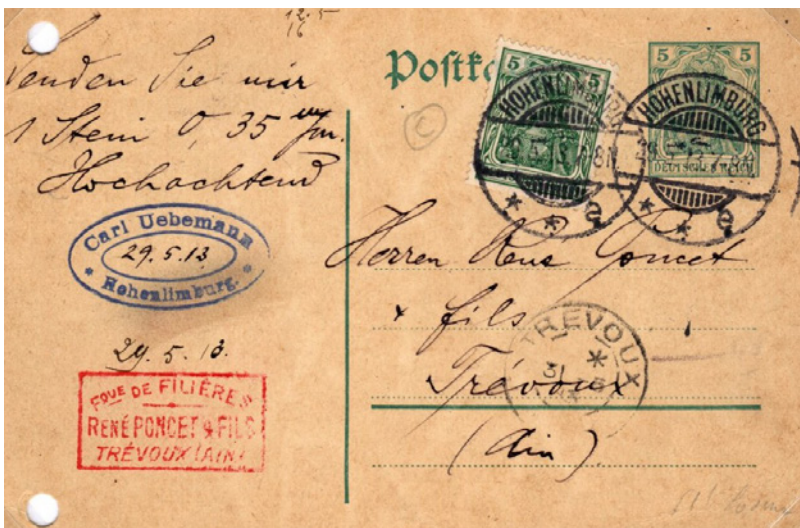 12.5
16
Senden Sie mir
1 Stein 0,35 m/m.
Hochachtend
Carl Uebemann
29.5.13.
Hohenlimburg.
29.5.13.
FQUE DE FILIÈRES
RENÉ PONCET & FILS
TRÉVOUX (AIN)
5 5
HOHENLIMBURG
5 5
HOHENLIMBURG
DEUTSCHES REICH
Herren René Poncet
& fils
TREVOUX
31
Trévoux
(Ain)
C